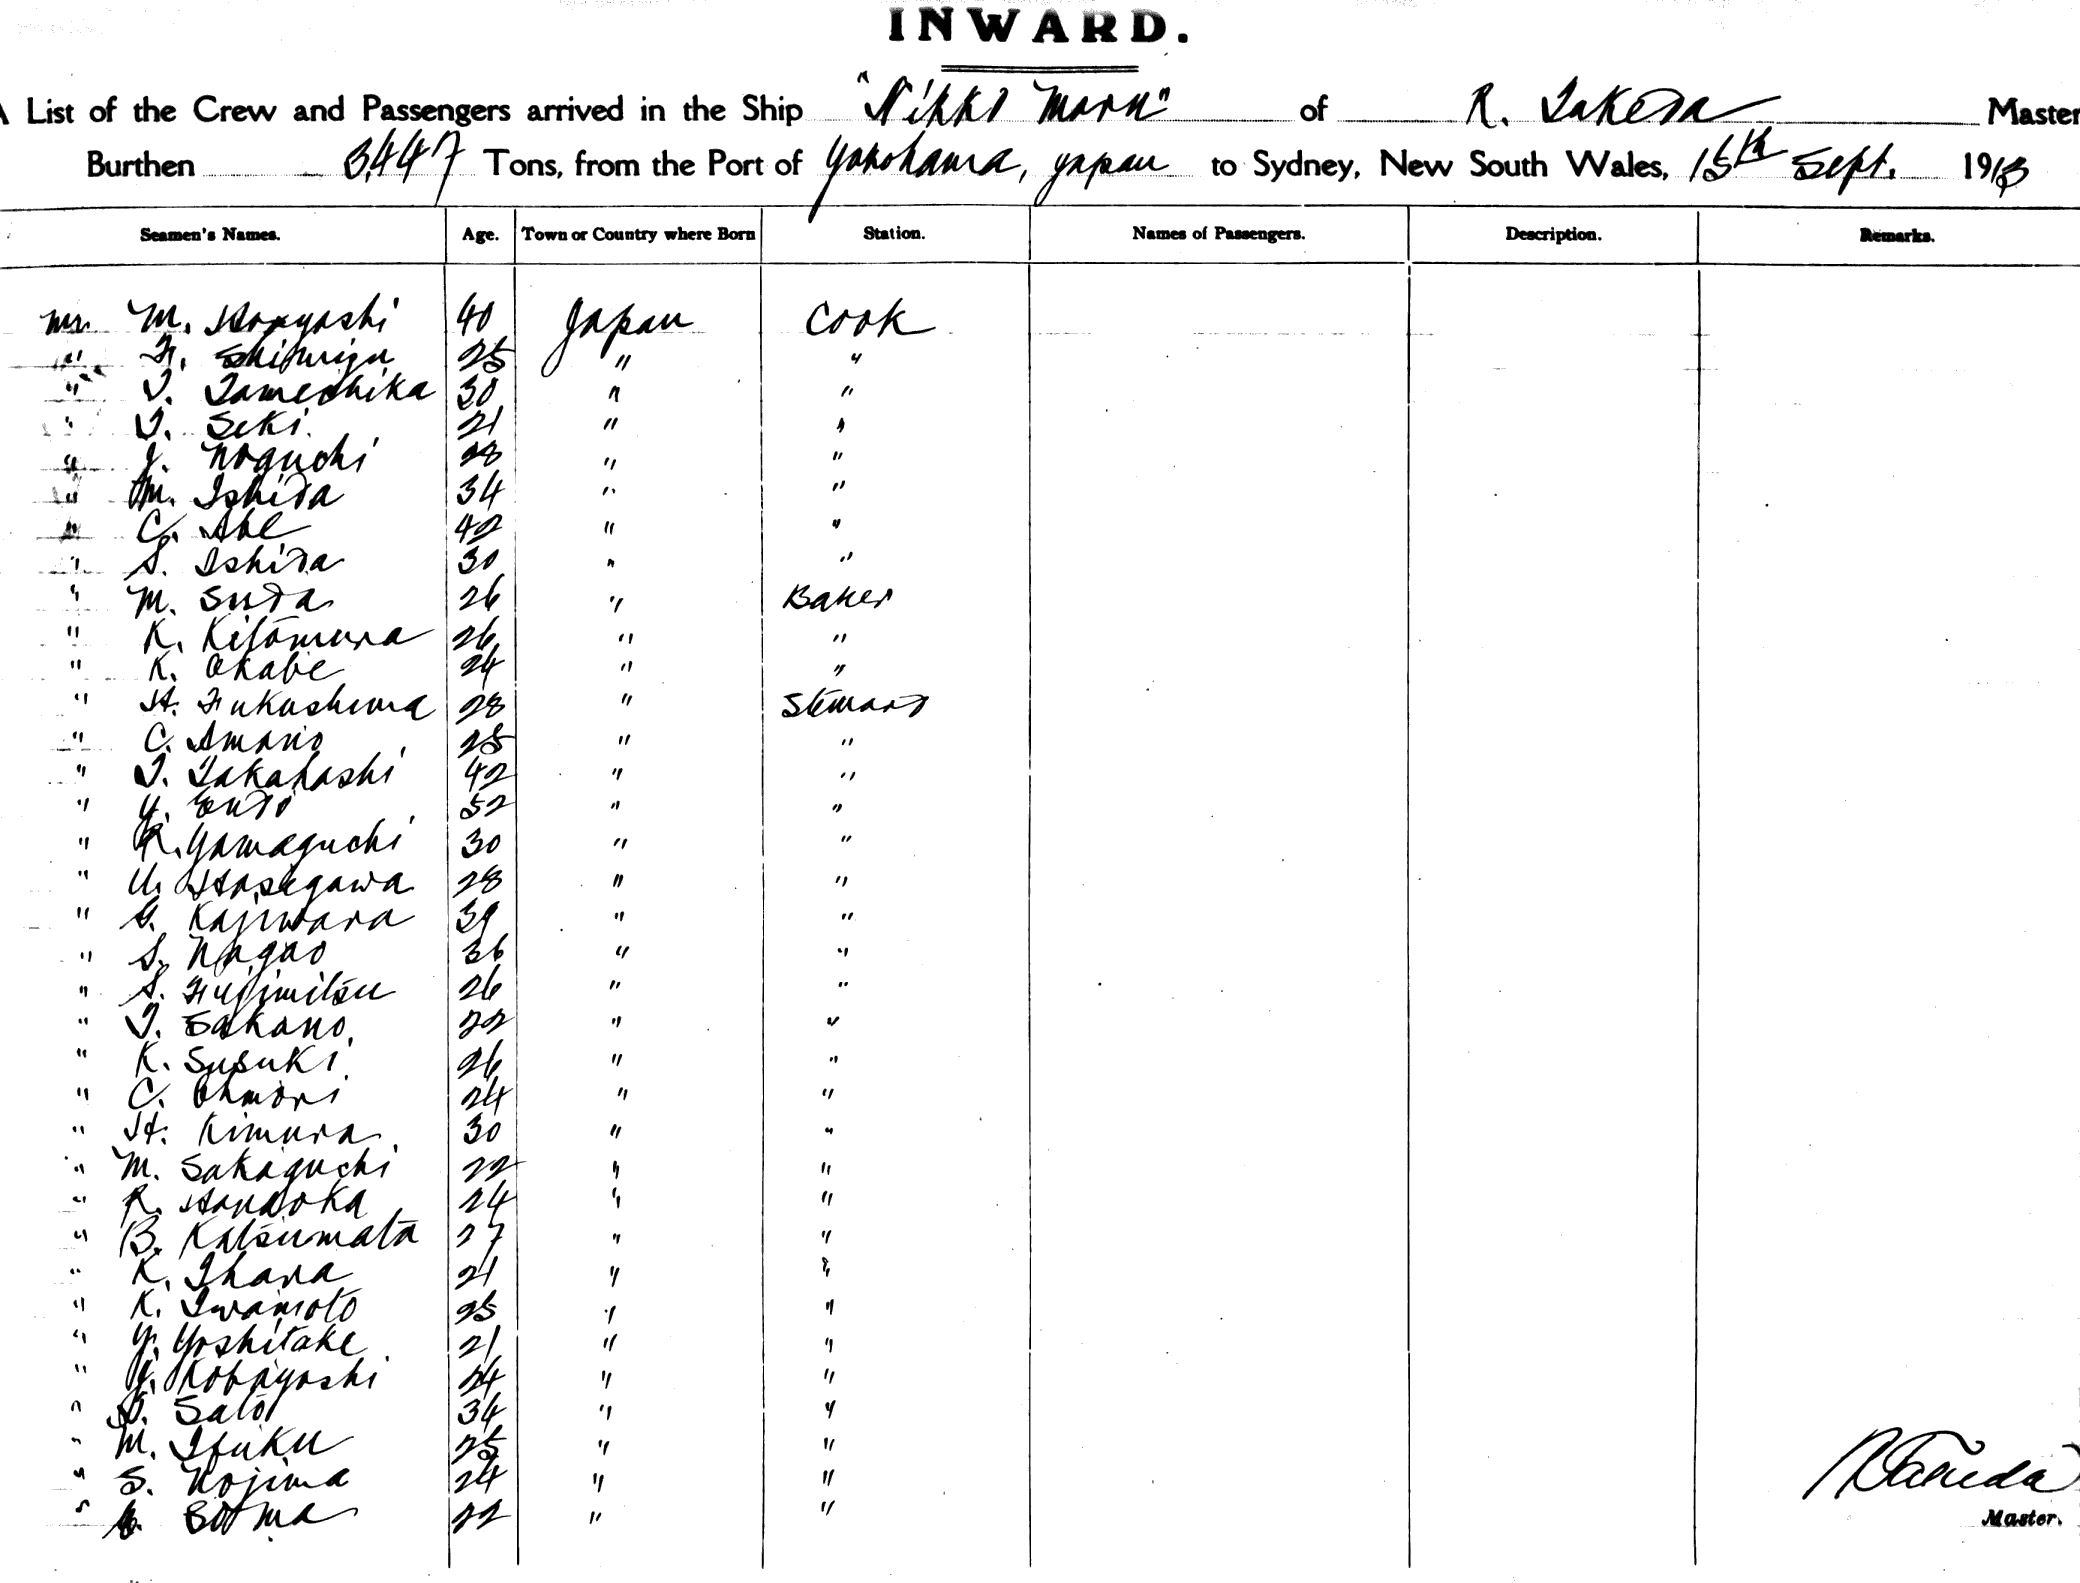 INWARD.
A List of the Crew and Passengers arrived in the Ship "Nikko Maru" of R. Takeda Master
Burthen 3,447 Tons, from the Port of Yokohama, Japan to Sydney, New South Wales, 15th Sept. 1913
Seamen's Names. Age. Town or Country where Born Station. Names of Passengers. Description. Remarks.
Mr. M. Hayashi 40 Japan Cook
" F. Shimizu 25 " "
" T. Tamechika 30 " "
" T. Seki 21 " "
" J. Noguchi 28 " "
" M. Ishida 34 " "
" C. Abe 42 " "
" S. Ishida 30 " "
" M. Suda 26 " Baker
" K. Kitamura 26 " "
" K. Okabe 24 " "
" H. Fukushima 28 " Steward
" C. Amano 25 " "
" T. Takahashi 42 " "
" Y. Endo 52 " "
" R. Yamaguchi 30 " "
" U. Hasegawa 28 " "
" S. Kajiwara 39 " "
" S. Nagao 36 " "
" S. Fujimitsu 26 " "
" T. Sakano 22 " "
" K. Susuki 26 " "
" C. Ohmori 24 " "
" H. Kimura 30 " "
" M. Sakaguchi 22 " "
" R. Hanaoka 24 " "
" B. Katsumata 27 " "
" K. Ihara 21 " "
" K. Iwamoto 25 " "
" Y. Yoshitake 21 " "
" Y. Kobayashi 24 " "
" S. Sato 34 " "
" M. Ifuku 25 " "
" S. Nojima 24 " "
" 22 " "
R Takeda
Master.